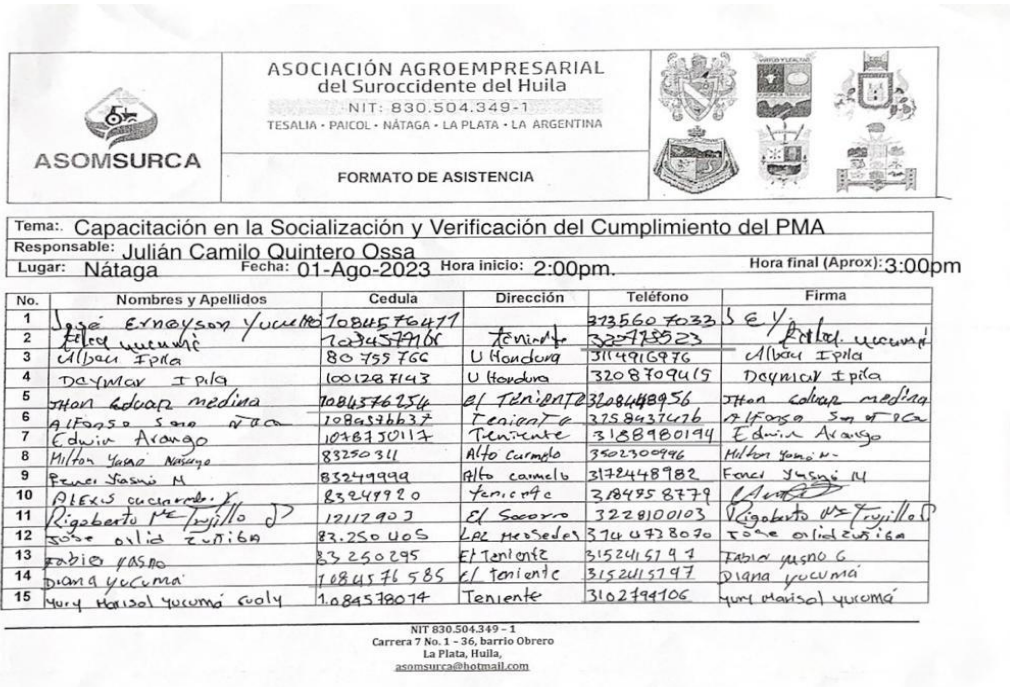 ASOMSURCA
ASOCIACIÓN AGROEMPRESARIAL
del Suroccidente del Huila
NIT: 830.504.349-1
TESALIA - PAICOL - NÁTAGA - LA PLATA - LA ARGENTINA
FORMATO DE ASISTENCIA
Tema:. Capacitación en la Socialización y Verificación del Cumplimiento del PMA
Responsable: Julián Camilo Quintero Ossa
Lugar: Nátaga Fecha: 01-Ago-2023 Hora inicio: 2:00pm. Hora final (Aprox): 3:00pm
No. Nombres y Apellidos Cedula Dirección Teléfono Firma
1 José Erneyson 1084576477 3135607033 J E Y.
2 yucumá teniente yucumá
3 Ulbau Ipila 80 755 766 U Hondura 3114916976 Ulbau Ipila
4 Deymar Ipila 1001287143 U Hondura 3208709415 Deymar Ipila
5 Jhon eduar medina 1084576254 el Teniente 3208448956 Jhon eduar medina
6 Alfonso Teniente Alfonso
7 Edwin Arango 1078750117 Teniente 3188980194 Edwin Arango
8 Milton Yasnó 83250311 Alto Carmelo 3502300996 Milton Yasnó N.
9 Yasnó M 83249999 Alto carmelo 3172448982 Yasnó M
10 Alexis 83249920 teniente 3184558779
11 Rigoberto Trujillo 12112903 El Socorro 3228100103 Rigoberto Trujillo
12 Jose arlid zuñiga 83.250 405 Las Mersedes 3144738070 Jose arlid zuñiga
13 Fabio yasno 83250295 El teniente 3152415797 Fabio yasno G
14 Diana yucumá 1084576585 el teniente 3152415797 Diana yucumá
15 Yury Marisol yucumá 1.084578074 Teniente 3102794106 Yury Marisol yucumá
NIT 830.504.349 – 1
Carrera 7 No. 1 – 36, barrio Obrero
La Plata, Huila,
asomsurca@hotmail.com